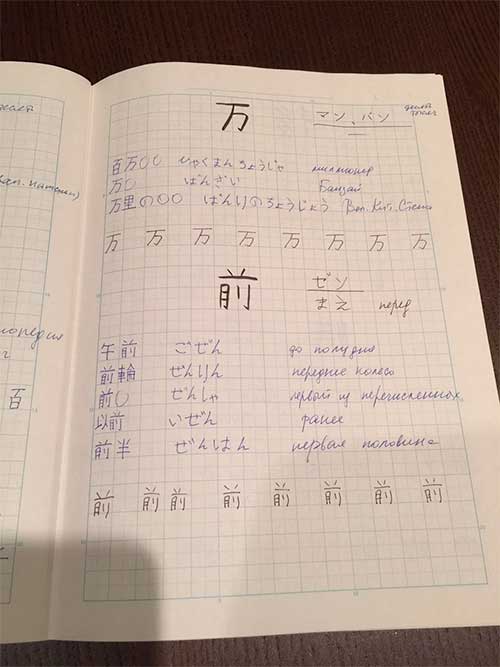 万 マン、バン десять тысяч
百万〇〇 ひゃくまんちょうじゃ миллионер
万〇 ばんざい Банзай
万里の〇〇 ばんりのちょうじょう Вел. Кит. Стена
万 万 万 万 万 万 万 万
前 ゼン
まえ перед
午前 ごぜん до полудня
前輪 ぜんりん переднее колесо
前〇 ぜんしゃ первый из перечисленных
以前 いぜん ранее
前半 ぜんはん первая половина
前 前 前 前 前 前 前 前
百